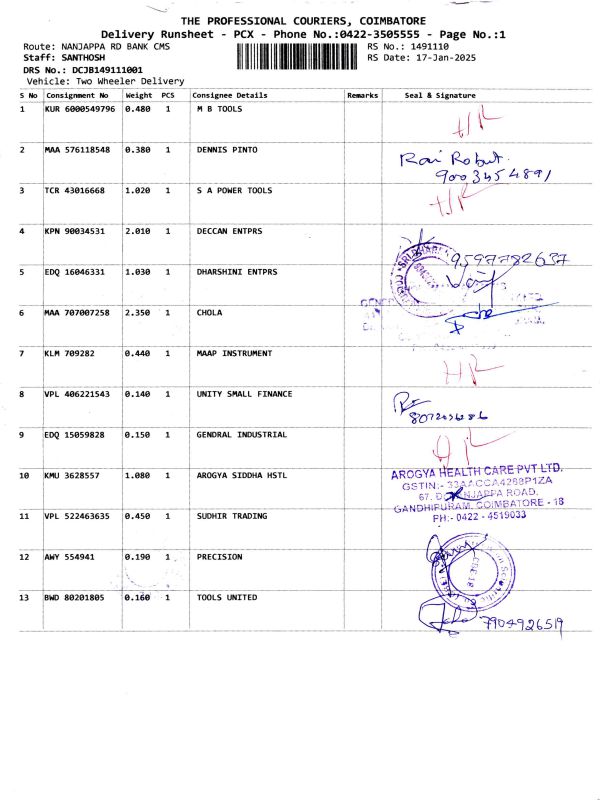 THE PROFESSIONAL COURIERS, COIMBATORE
Delivery Runsheet - PCX - Phone No.:0422-3505555 - Page No.:1
Route: NANJAPPA RD BANK CMS RS No.: 1491110
Staff: SANTHOSH RS Date: 17-Jan-2025
DRS No.: DCJB149111001
Vehicle: Two Wheeler Delivery
S No Consignment No Weight PCS Consignee Details Remarks Seal & Signature
1 KUR 6000549796 0.480 1 M B TOOLS
2 MAA 576118548 0.380 1 DENNIS PINTO
9003454891
3 TCR 43016668 1.020 1 S A POWER TOOLS
4 KPN 90034531 2.010 1 DECCAN ENTPRS
9597782637
5 EDQ 16046331 1.030 1 DHARSHINI ENTPRS
6 MAA 707007258 2.350 1 CHOLA
7 KLM 709282 0.440 1 MAAP INSTRUMENT
8 VPL 406221543 0.140 1 UNITY SMALL FINANCE
9 EDQ 15059828 0.150 1 GENDRAL INDUSTRIAL
10 KMU 3628557 1.080 1 AROGYA SIDDHA HSTL
AROGYA HEALTH CARE PVT LTD.
GSTIN:-
67, NJAPPA ROAD,
GANDHIPURAM, COIMBATORE - 18
PH:- 0422 - 4519033
11 VPL 522463635 0.450 1 SUDHIR TRADING
12 AWY 554941 0.190 1 PRECISION
13 BWD 80201805 0.160 1 TOOLS UNITED
7904926519